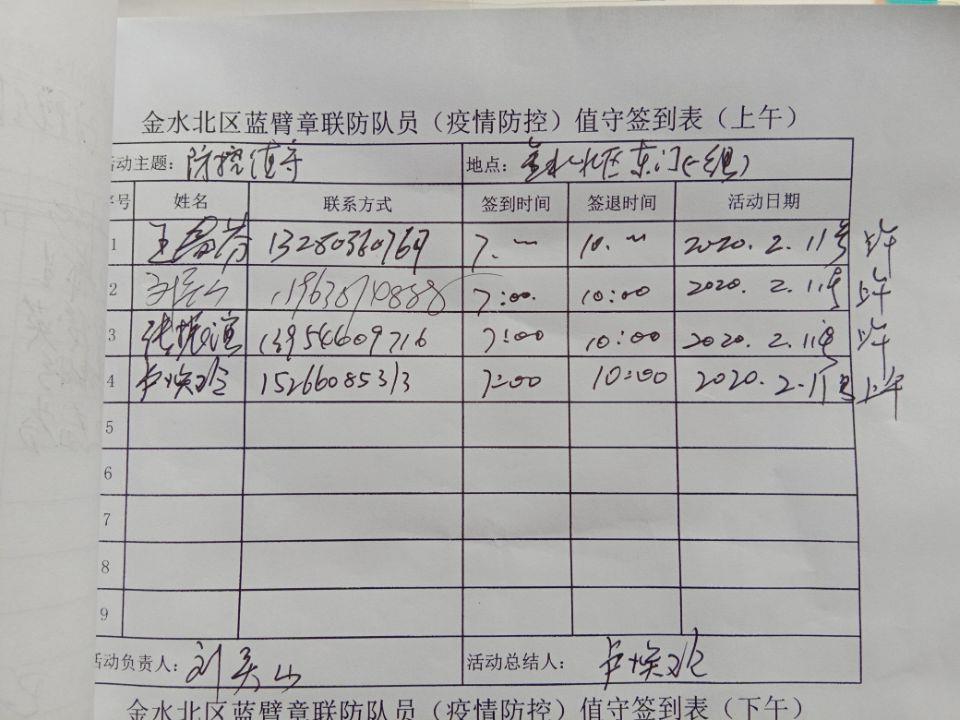 金水北区蓝臂章联防队员（疫情防控）值守签到表（上午）
活动主题：防控值守 地点：金水北区东门(一组)
序号 姓名 联系方式 签到时间 签退时间 活动日期
1 王 13280360769 7. 10. 2020.2.11号 上午
2 刘 7:00. 10:00 2020. 2.11号 上午
3 张振 13954609716 7:00 10:00 2020. 2.11号 上午
4 卢焕 15266085313 7:00 10:00 2020. 2.11号 上午
5
6
7
8
9
活动负责人：刘 山 活动总结人：卢焕
金水北区蓝臂章联防队员（疫情防控）值守签到表（下午）